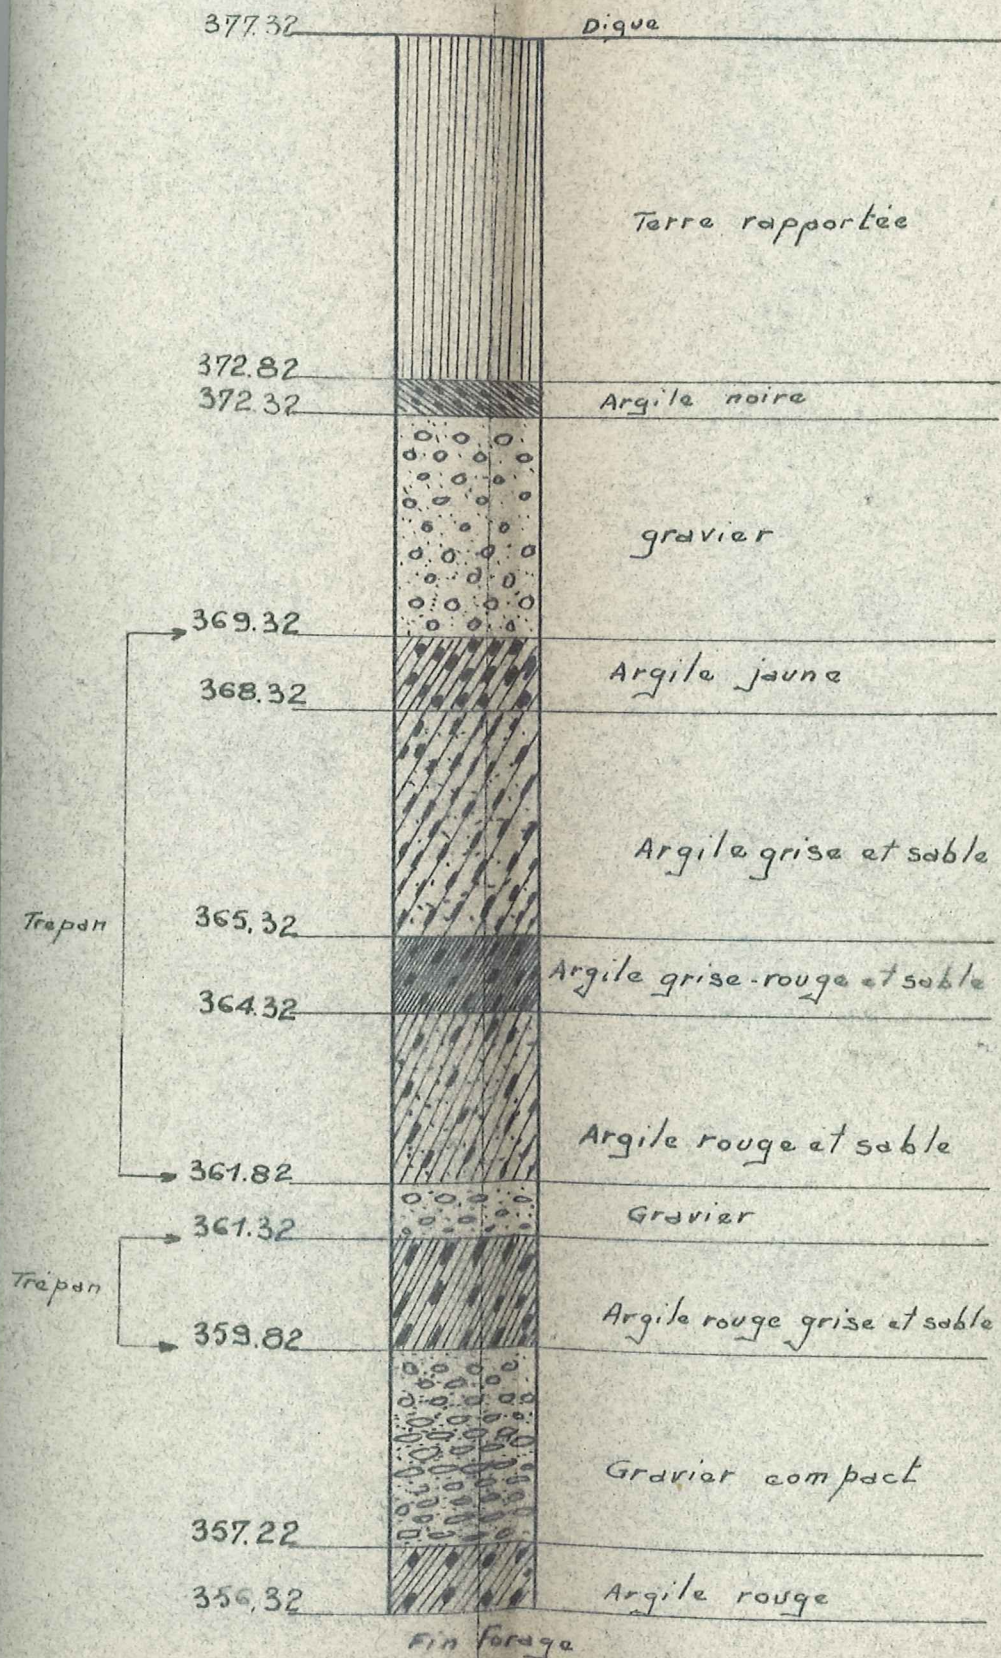 377.32 Digue
Terre rapportée
372.82
372.32 Argile noire
gravier
369.32
Argile jaune
368.32
Argile grise et sable
Trepan 365,32
Argile grise-rouge et sable
364.32
Argile rouge et sable
361.82
Gravier
361.32
Trépan
Argile rouge grise et sable
359.82
Gravier compact
357.22
Argile rouge
356,32
Fin Forage